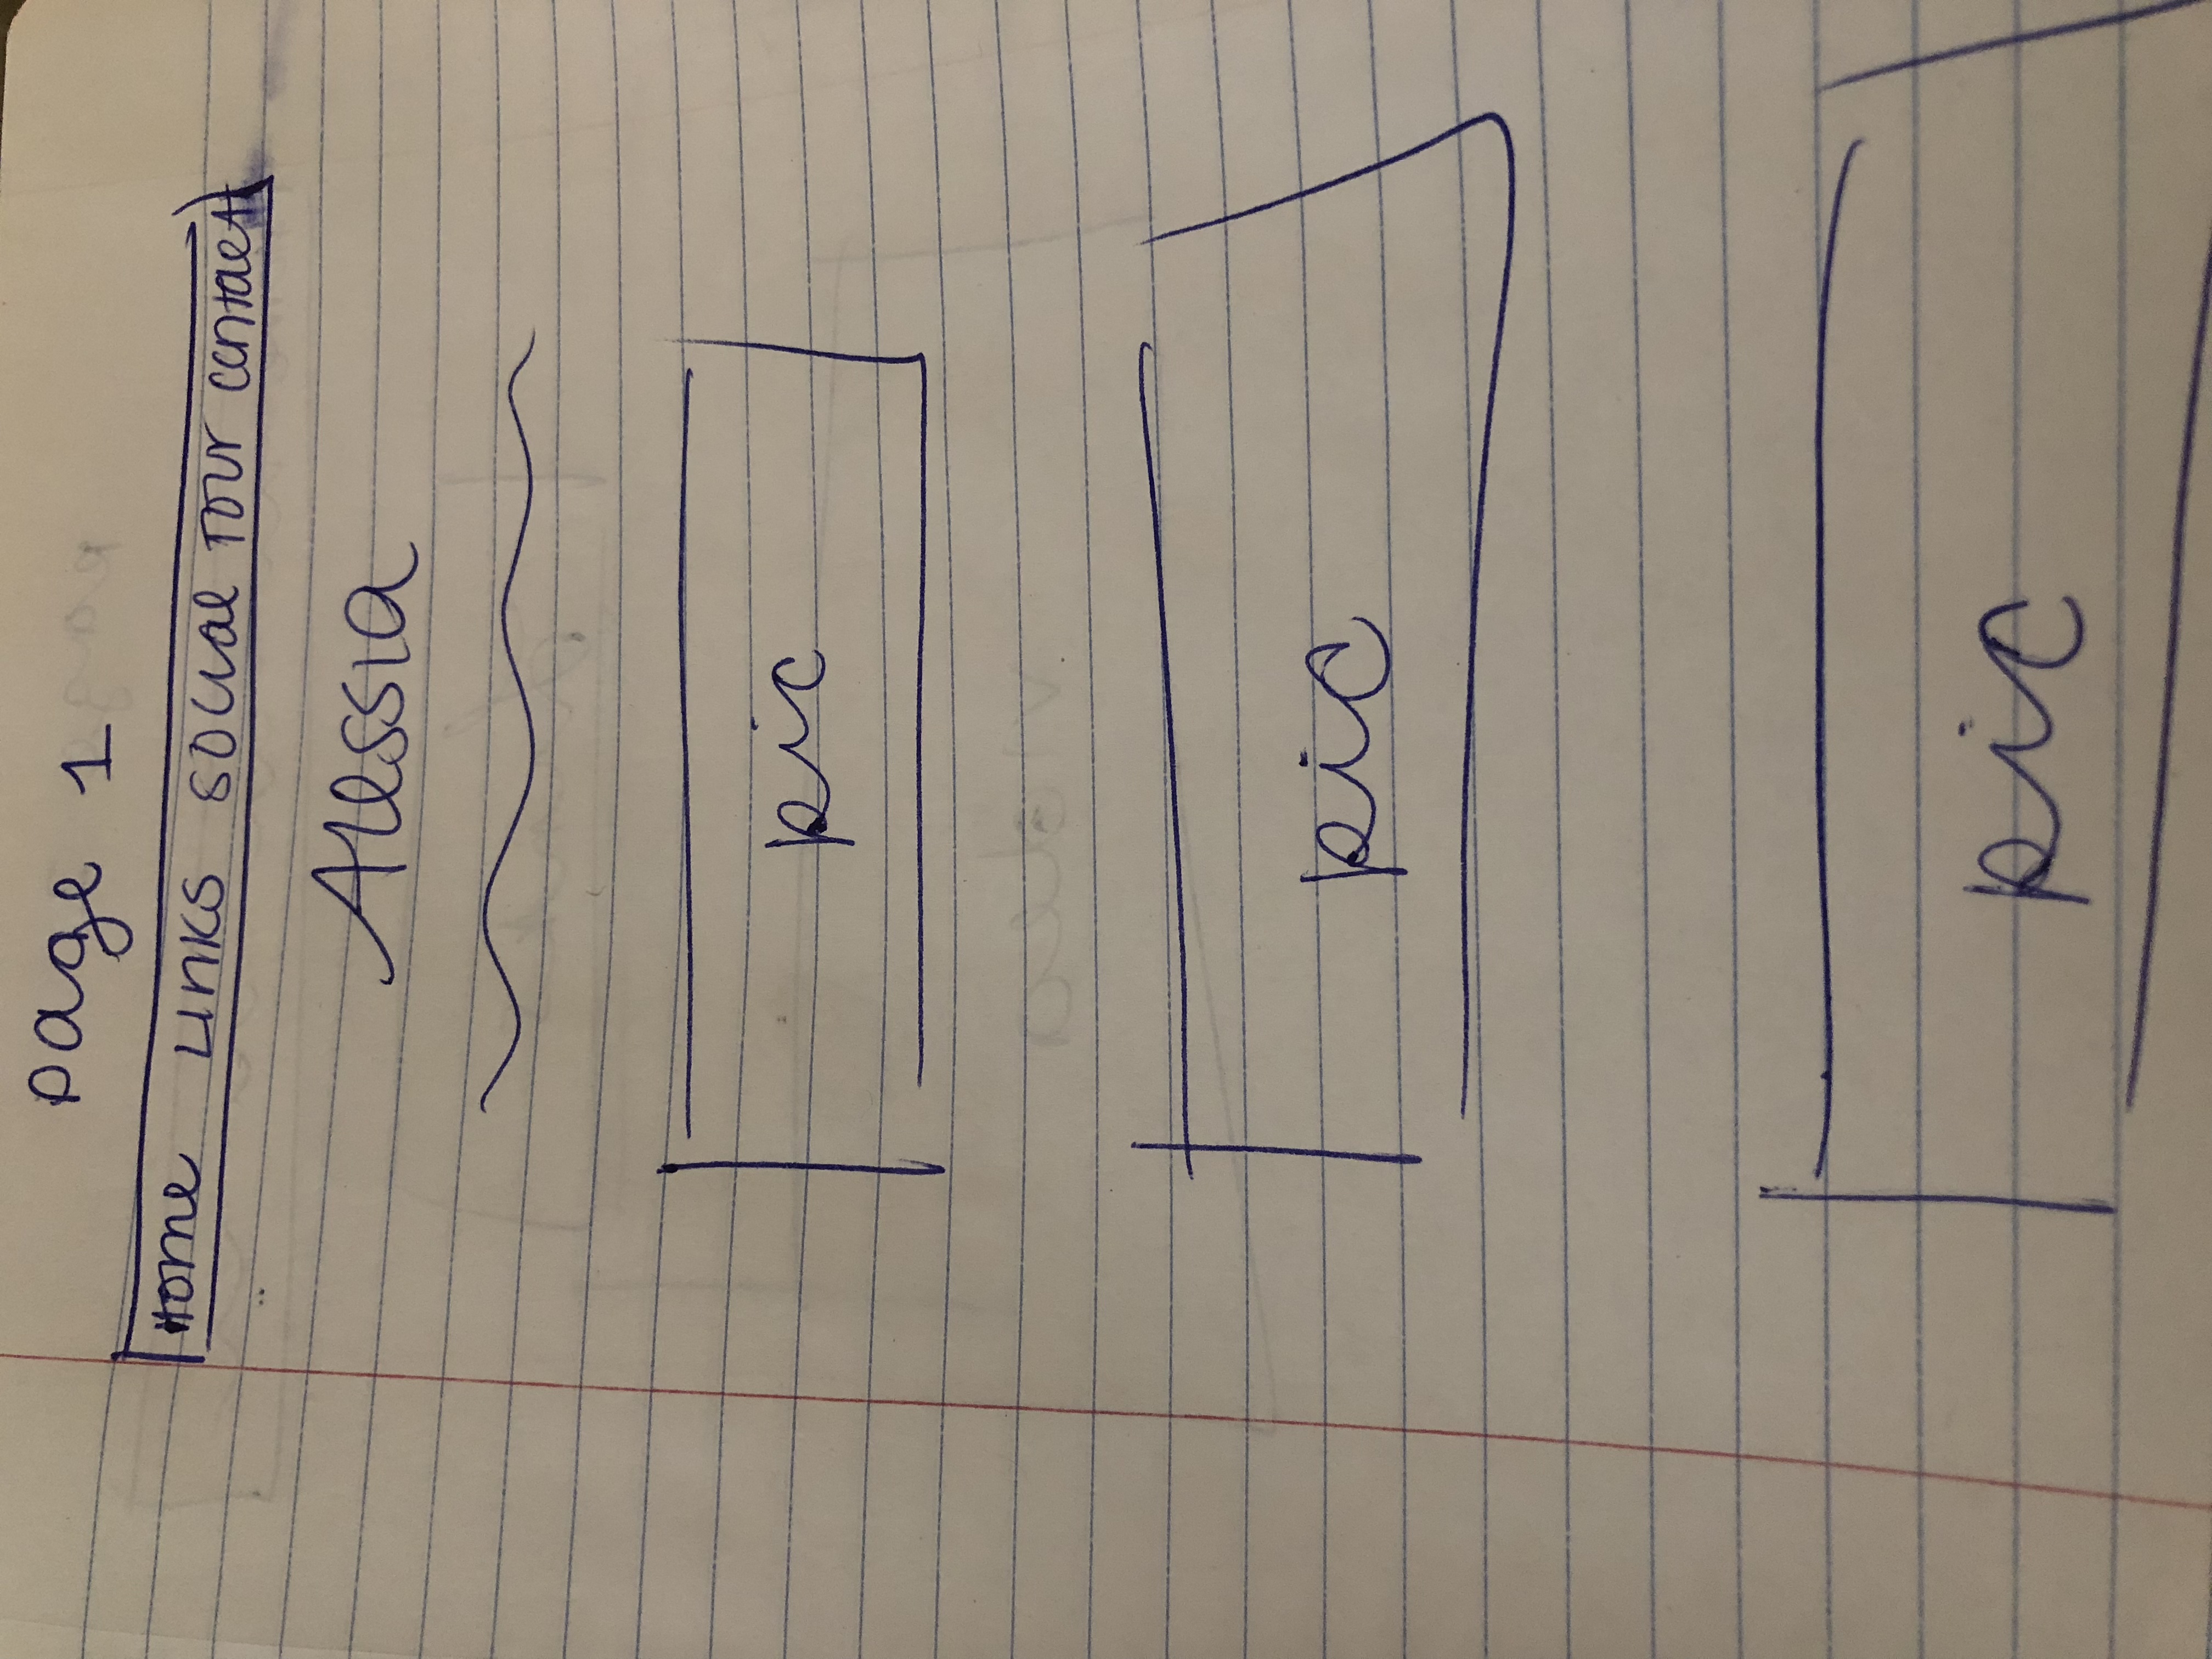 page 1
Home Links Social Tour Contact
Alessia
pic
pic
pic